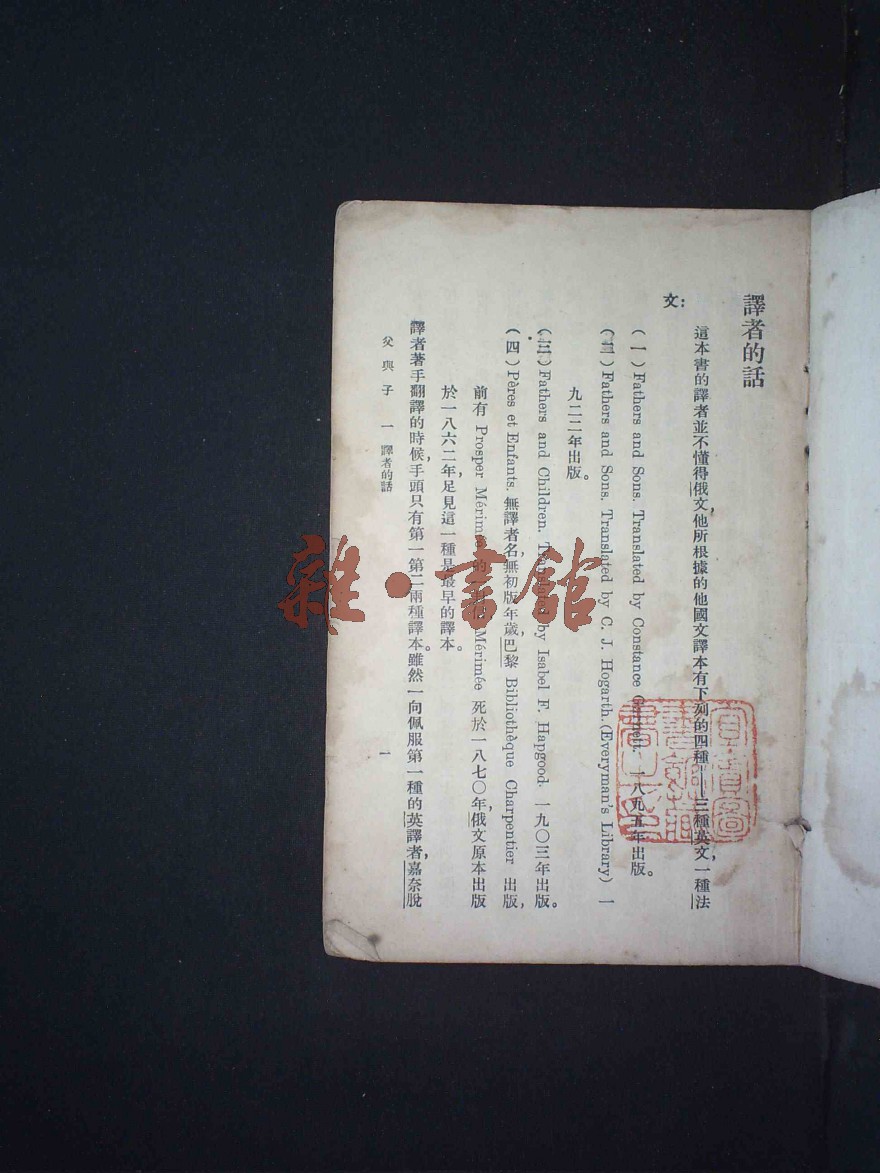 譯者的話
這本書的譯者並不懂得俄文，他所根據的他國文譯本有下列的四種——三種英文，一種法
文：
（一）Fathers and Sons. Translated by Constance 一八九五年出版。
（二）Fathers and Sons. Translated by C. J. Hogarth. (Everyman's Library) 一
九二二年出版。
（三）Fathers and Children. Translated by Isabel F. Hapgood. 一九〇三年出版。
（四）Pères et Enfants. 無譯者名，無初版年歲，巴黎 Bibliothèque Charpentier 出版，
前有 Prosper Mérimée Mérimée 死於一八七〇年，俄文原本出版
於一八六二年，足見這一種是最早的譯本。
譯者著手翻譯的時候，手頭只有第一第二兩種譯本。雖然一向佩服第一種的英譯者，嘉奈脫
父與子 一 譯者的話
一
雜·書館